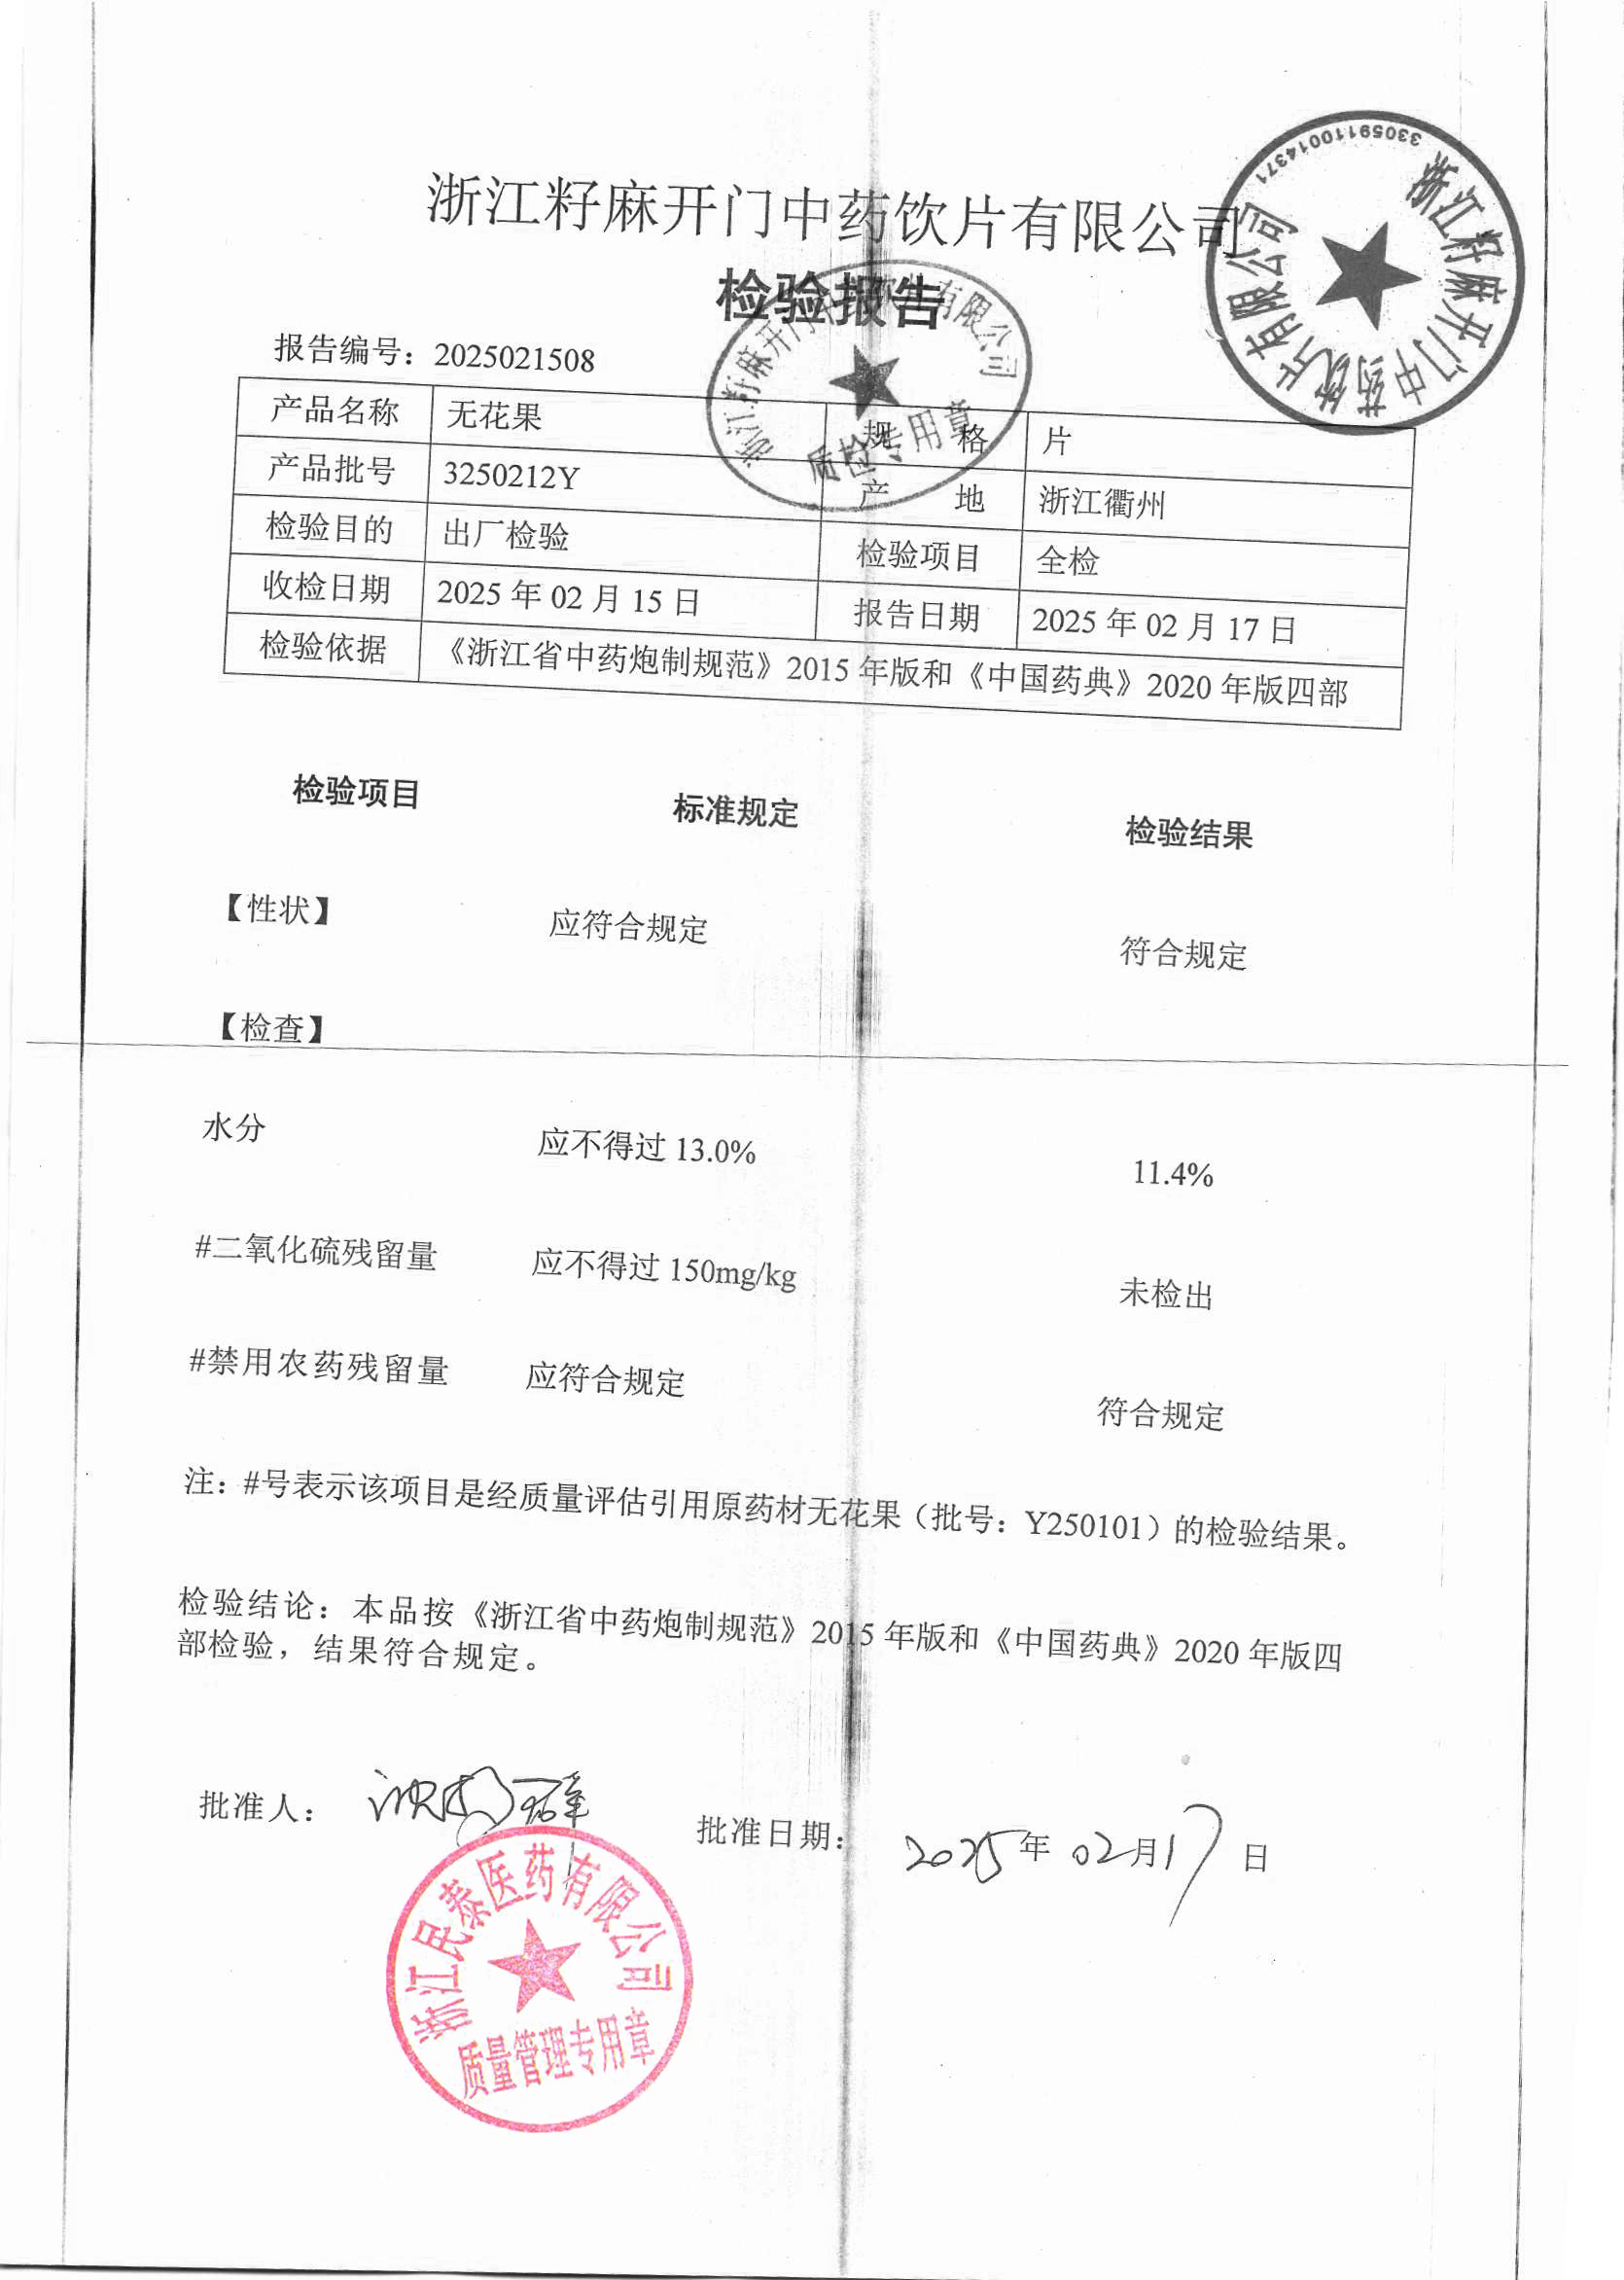 浙江籽麻开门中药饮片有限公司
检验报告
报告编号：2025021508
产品名称 无花果 规 格 片
产品批号 3250212Y 产 地 浙江衢州
检验目的 出厂检验 检验项目 全检
收检日期 2025 年 02 月 15 日 报告日期 2025 年 02 月 17 日
检验依据 《浙江省中药炮制规范》2015 年版和《中国药典》2020 年版四部
检验项目 标准规定 检验结果
【性状】 应符合规定 符合规定
【检查】
水分 应不得过 13.0% 11.4%
#二氧化硫残留量 应不得过 150mg/kg 未检出
#禁用农药残留量 应符合规定 符合规定
注：#号表示该项目是经质量评估引用原药材无花果（批号：Y250101）的检验结果。
检验结论：本品按《浙江省中药炮制规范》2015 年版和《中国药典》2020 年版四
部检验，结果符合规定。
批准人： 批准日期： 2025 年 02 月 17 日
浙江籽麻开门中药饮片有限公司
33059110014371
浙江籽麻开门中药饮片有限公司
质检专用章
浙江民泰医药有限公司
质量管理专用章